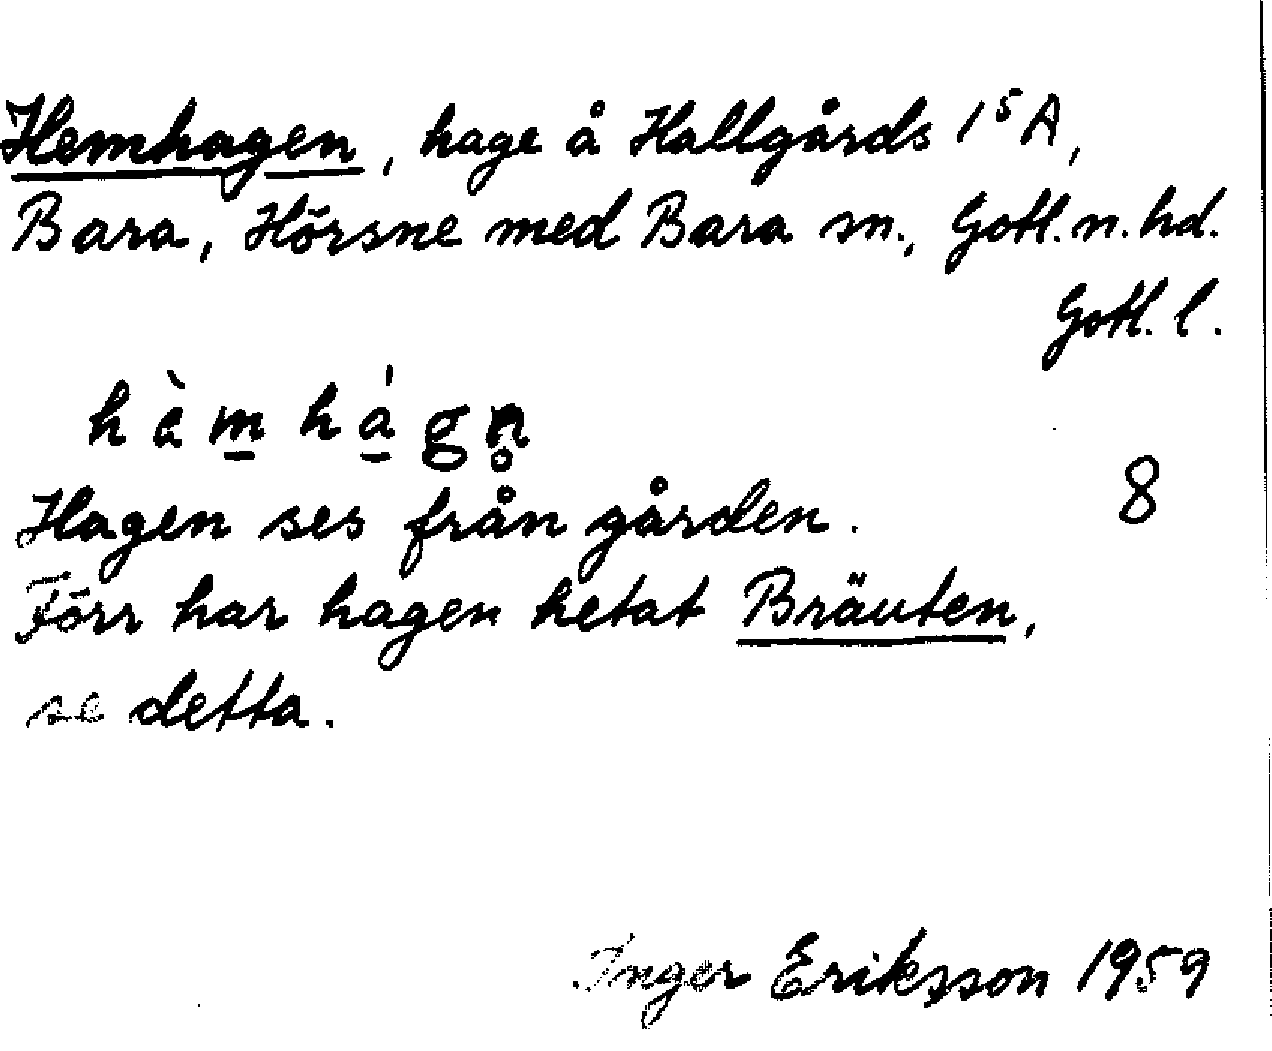 Hemhagen, hage å Hallgårds 1⁵A,
Bara, Hörsne med Bara sn., Gotl. n. hd.
Gotl. l.
hàm hágn̥
8
Hagen ses från gården.
Förr har hagen hetat Bräuten,
se detta.
Inger Eriksson 1959